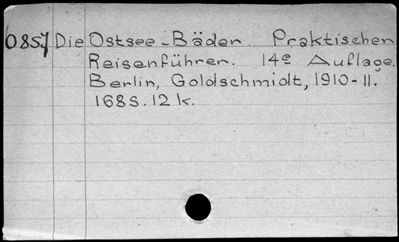 0857 Die Ostsee-Bäder. Praktischer
Reisenführer. 14e Auflage.
Berlin, Goldschmidt, 1910-11.
168S. 12 k.